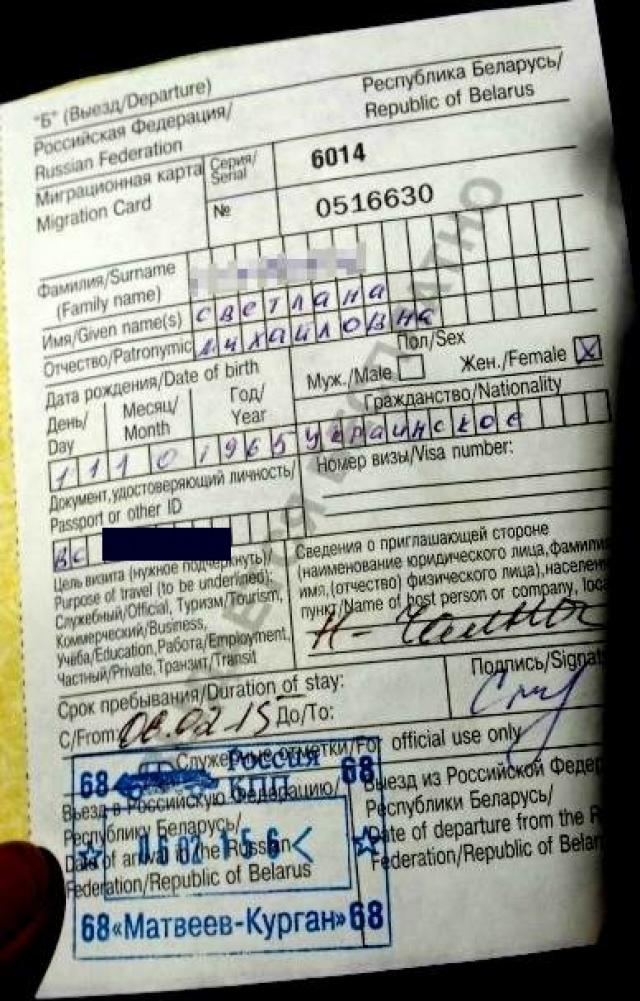 "Б" (Выезд/Departure)
Российская Федерация/
Russian Federation
Республика Беларусь/
Republic of Belarus
Миграционная карта
Migration Card
Серия/
Serial
6014
№
0516630
Фамилия/Surname
(Family name)
Имя/Given name(s) светлана
Отчество/Patronymic михайловна
Дата рождения/Date of birth
День/
Day
Месяц/
Month
Год/
Year
11 10 1965
Пол/Sex
Муж./Male
Жен./Female X
Гражданство/Nationality
украинское
Документ,удостоверяющий личность/
Passport or other ID
вс
Номер визы/Visa number:
Цель визита (нужное подчеркнуть)/
Purpose of travel (to be underlined):
Служебный/Official, Туризм/Tourism,
Коммерческий/Business,
Учёба/Education,Работа/Employment,
Частный/Private, Транзит/Transit
Сведения о приглашающей стороне
(наименование юридического лица, фамилия
имя,(отчество) физического лица), населен
пункт/Name of host person or company, loca
Срок пребывания/Duration of stay:
С/From 06.02.15 До/To:
Подпись/Signat
Служебные отметки/For official use only
Въезд в Российскую Федерацию/
Республику Беларусь/
Date of arrival in the Russian
Federation/Republic of Belarus
Выезд из Российской Федер
Республики Беларусь/
Date of departure from the R
Federation/Republic of Belar
68 Россия 68
КПП
06 02 15 6 <
68 «Матвеев-Курган» 68